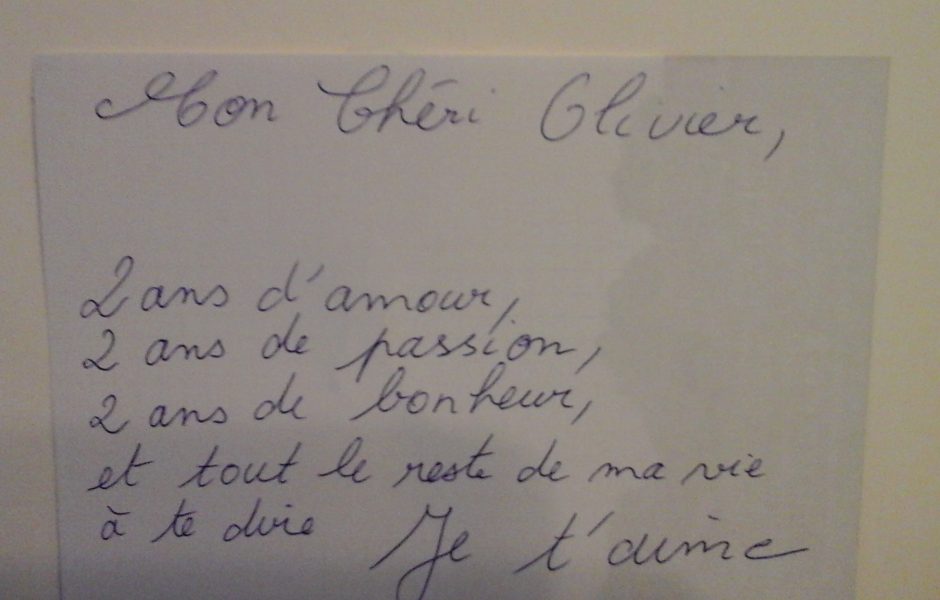 Mon Chéri Olivier,
2 ans d'amour,
2 ans de passion,
2 ans de bonheur,
et tout le reste de ma vie
à te dire Je t'aime